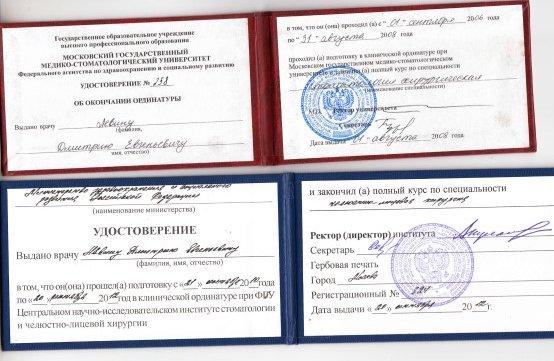 Государственное образовательное учреждение
высшего профессионального образования
МОСКОВСКИЙ ГОСУДАРСТВЕННЫЙ
МЕДИКО-СТОМАТОЛОГИЧЕСКИЙ УНИВЕРСИТЕТ
Федерального агентства по здравоохранению и социальному развитию
УДОСТОВЕРЕНИЕ №
ОБ ОКОНЧАНИИ ОРДИНАТУРЫ
Выдано врачу
(фамилия,
Дмитрию Евгеньевичу
имя, отчество)
в том, что он (она) проходил (а) с «01» сентября 2006 года
по «31» августа 2008 года
проходил (а) подготовку в клинической ординатуре при
Московском государственном медико-стоматологическом
университете и закончил (а) полный курс по специальности
Стоматология хирургическая
(наименование специальности)
М.П. Ректор университета
Секретарь
Дата выдачи «01» августа 2008 года
Министерство здравоохранения и социального
развития Российской Федерации
(наименование министерства)
УДОСТОВЕРЕНИЕ
Выдано врачу Дмитрию Евгеньевичу
(фамилия, имя, отчество)
в том, что он(она) прошел(а) подготовку с «21» 2010 года
по «20» 2012 год в клинической ординатуре при ФГУ
Центральном научно-исследовательском институте стоматологии
и челюстно-лицевой хирургии
и закончил (а) полный курс по специальности
челюстно-лицевая хирургия
Ректор (директор) института
Секретарь
Гербовая печать
Город Москва
Регистрационный №
Дата выдачи «20» 2012 г.